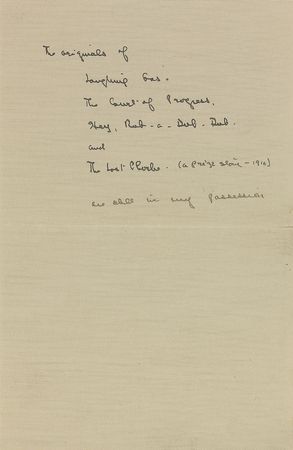 The originals of
Laughing Gas.
The Court of Progress.
Hey, Rub-a-Dub-Dub.
and
The Lost Phoebe. (a prize story - 1916)
are still in my possession